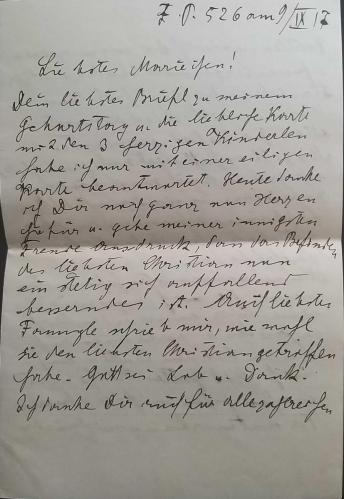 F. P. 526 am 9/IX 17
Liebstes Mariechen!
Dein liebstes Briefl zu meinem
Geburtstag u. die liebliche Karte
mit den 3 herzigen Kinderlen
habe ich nur mit einer eiligen
Karte beantwortet. Heute danke
ich Dir noch ganz von Herzen
dafür u. gebe meiner innigsten
Freude Ausdruck, dass das Befinden
des liebsten Christian nun
ein stetig sich auffallend
besserndes ist. Auch liebstes
schrieb mir, wie wohl
sie den liebsten Christian getroffen
habe. Gott sei Lob u. Dank.
Ich danke Dir auch für alle zahlreichen